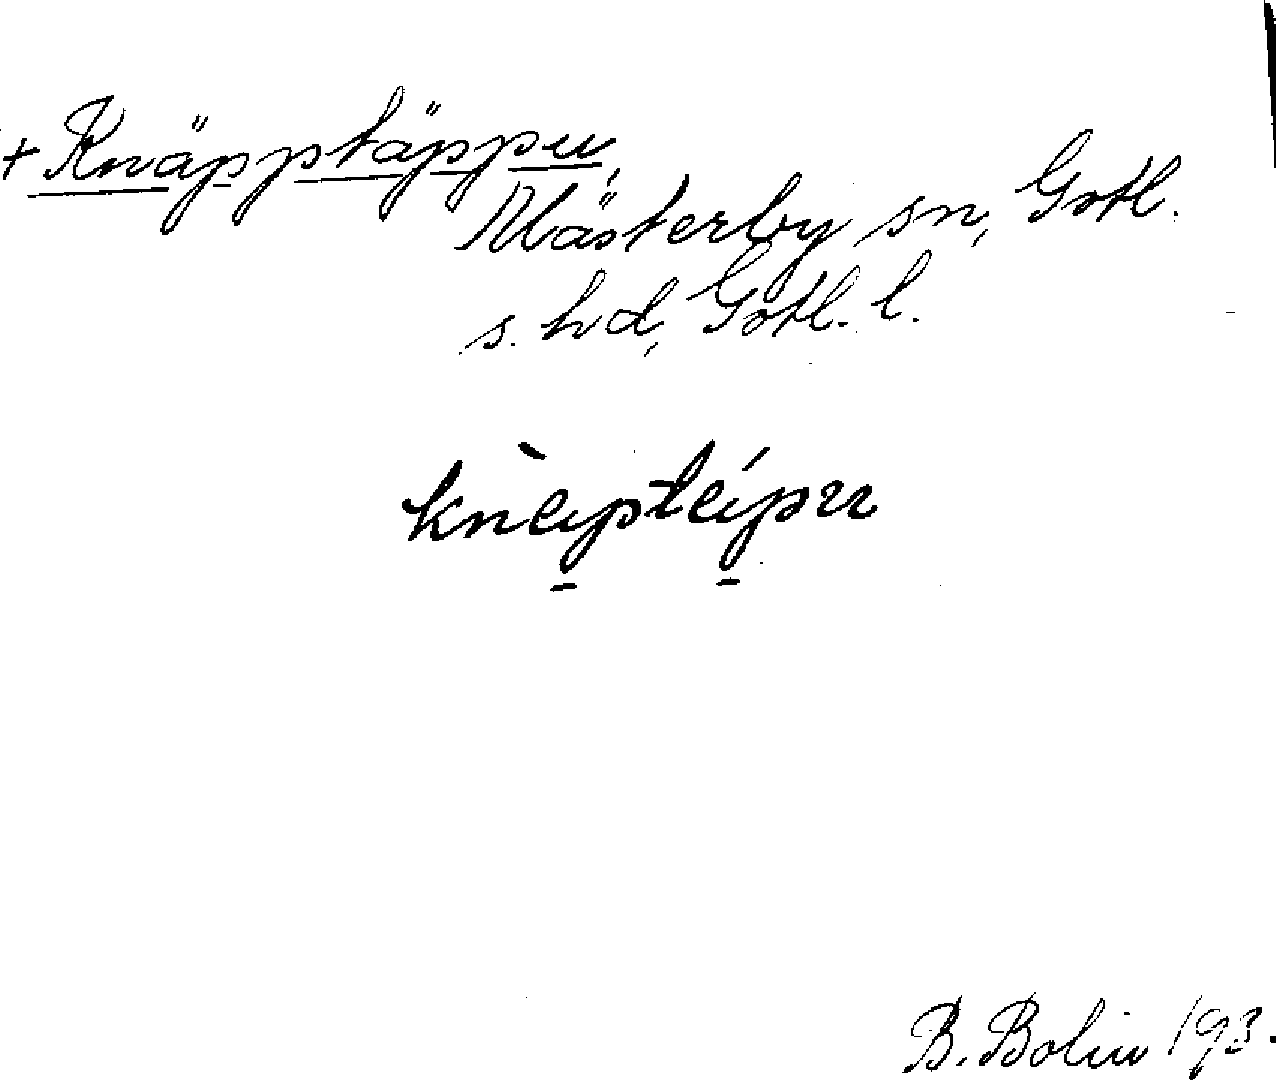 + Knäpptäppu,
Mästerby sn, Gotl.
s. hd, Gotl. l.
knèptépu
B. Bolin 193.